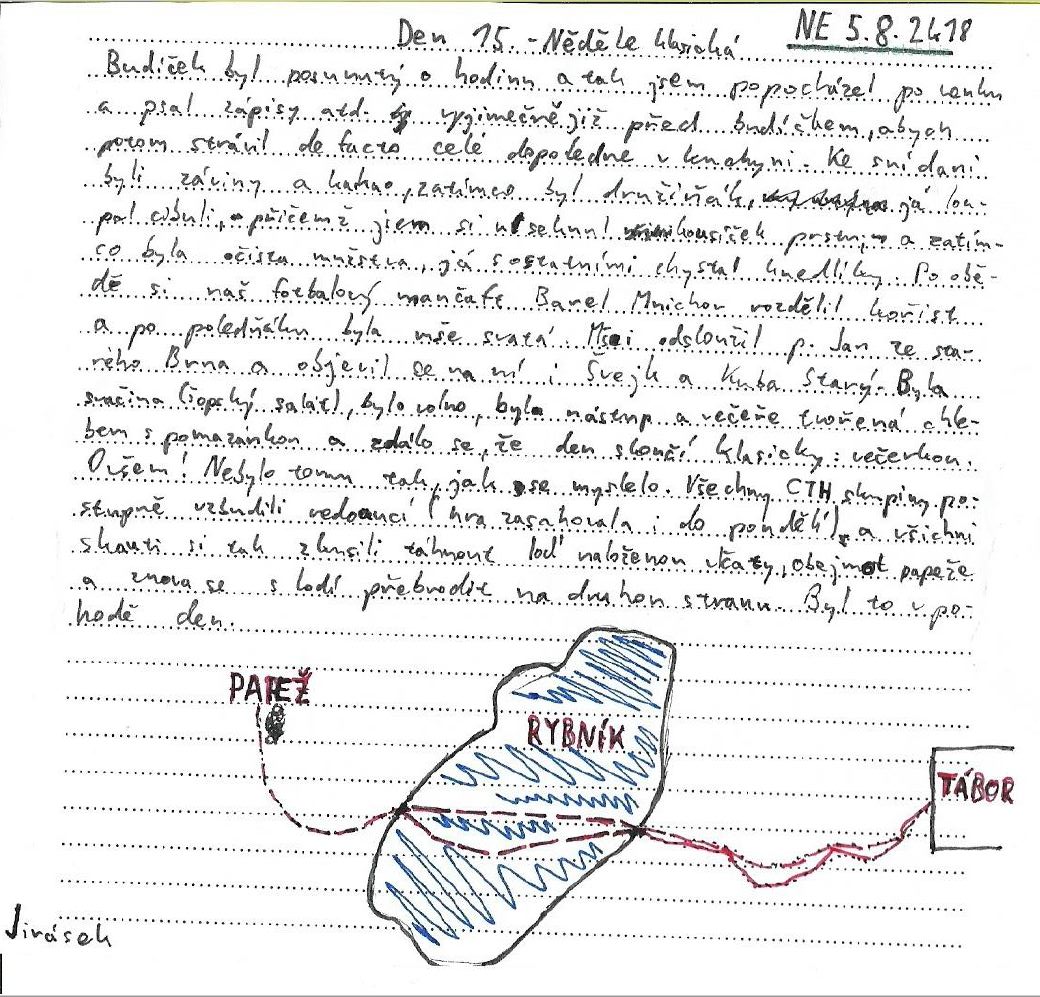 Den 15. - Neděle klasická
NE 5.8.2418
Budíček byl posunutý o hodinu a tak jsem popocházel po venku
a psal zápisy atd. výjimečně již před budíčkem, abych
potom strávil de facto celé dopoledne v kuchyni. Ke snídani
byli záviny a kakao, zatímco byl družiňák, já lou-
pal cibuli, přičemž jsem si useknul kousíček prstu, a zatím-
co byla očista mužstva, já s ostatními chystal knedlíky. Po obě-
dě si náš fotbalový mančaft Barel Mnichov rozdělil kořist
a po poledňáku byla mše svatá. Mši odsloužil p. Jan ze sta-
rého Brna a objevil se na ní i Švejk a Kuba Starý. Byla
svačina (šopský salát), bylo volno, byl nástup a večeře tvořená chle-
bem s pomazánkou a zdálo se, že den skončí klasicky: večerkou.
Ovšem! Nebylo tomu tak, jak se myslelo. Všechny CTH skupiny po-
stupně vzbudili vedoucí (hra zasahovala i do pondělí), a všichni
skauti si tak zkusili táhnout loď naloženou vkaty, obejmot papeže
a znova se s lodí přebrodit na druhou stranu. Byl to v po-
hodě den.
PAPEŽ
RYBNÍK
TÁBOR
Jirásek